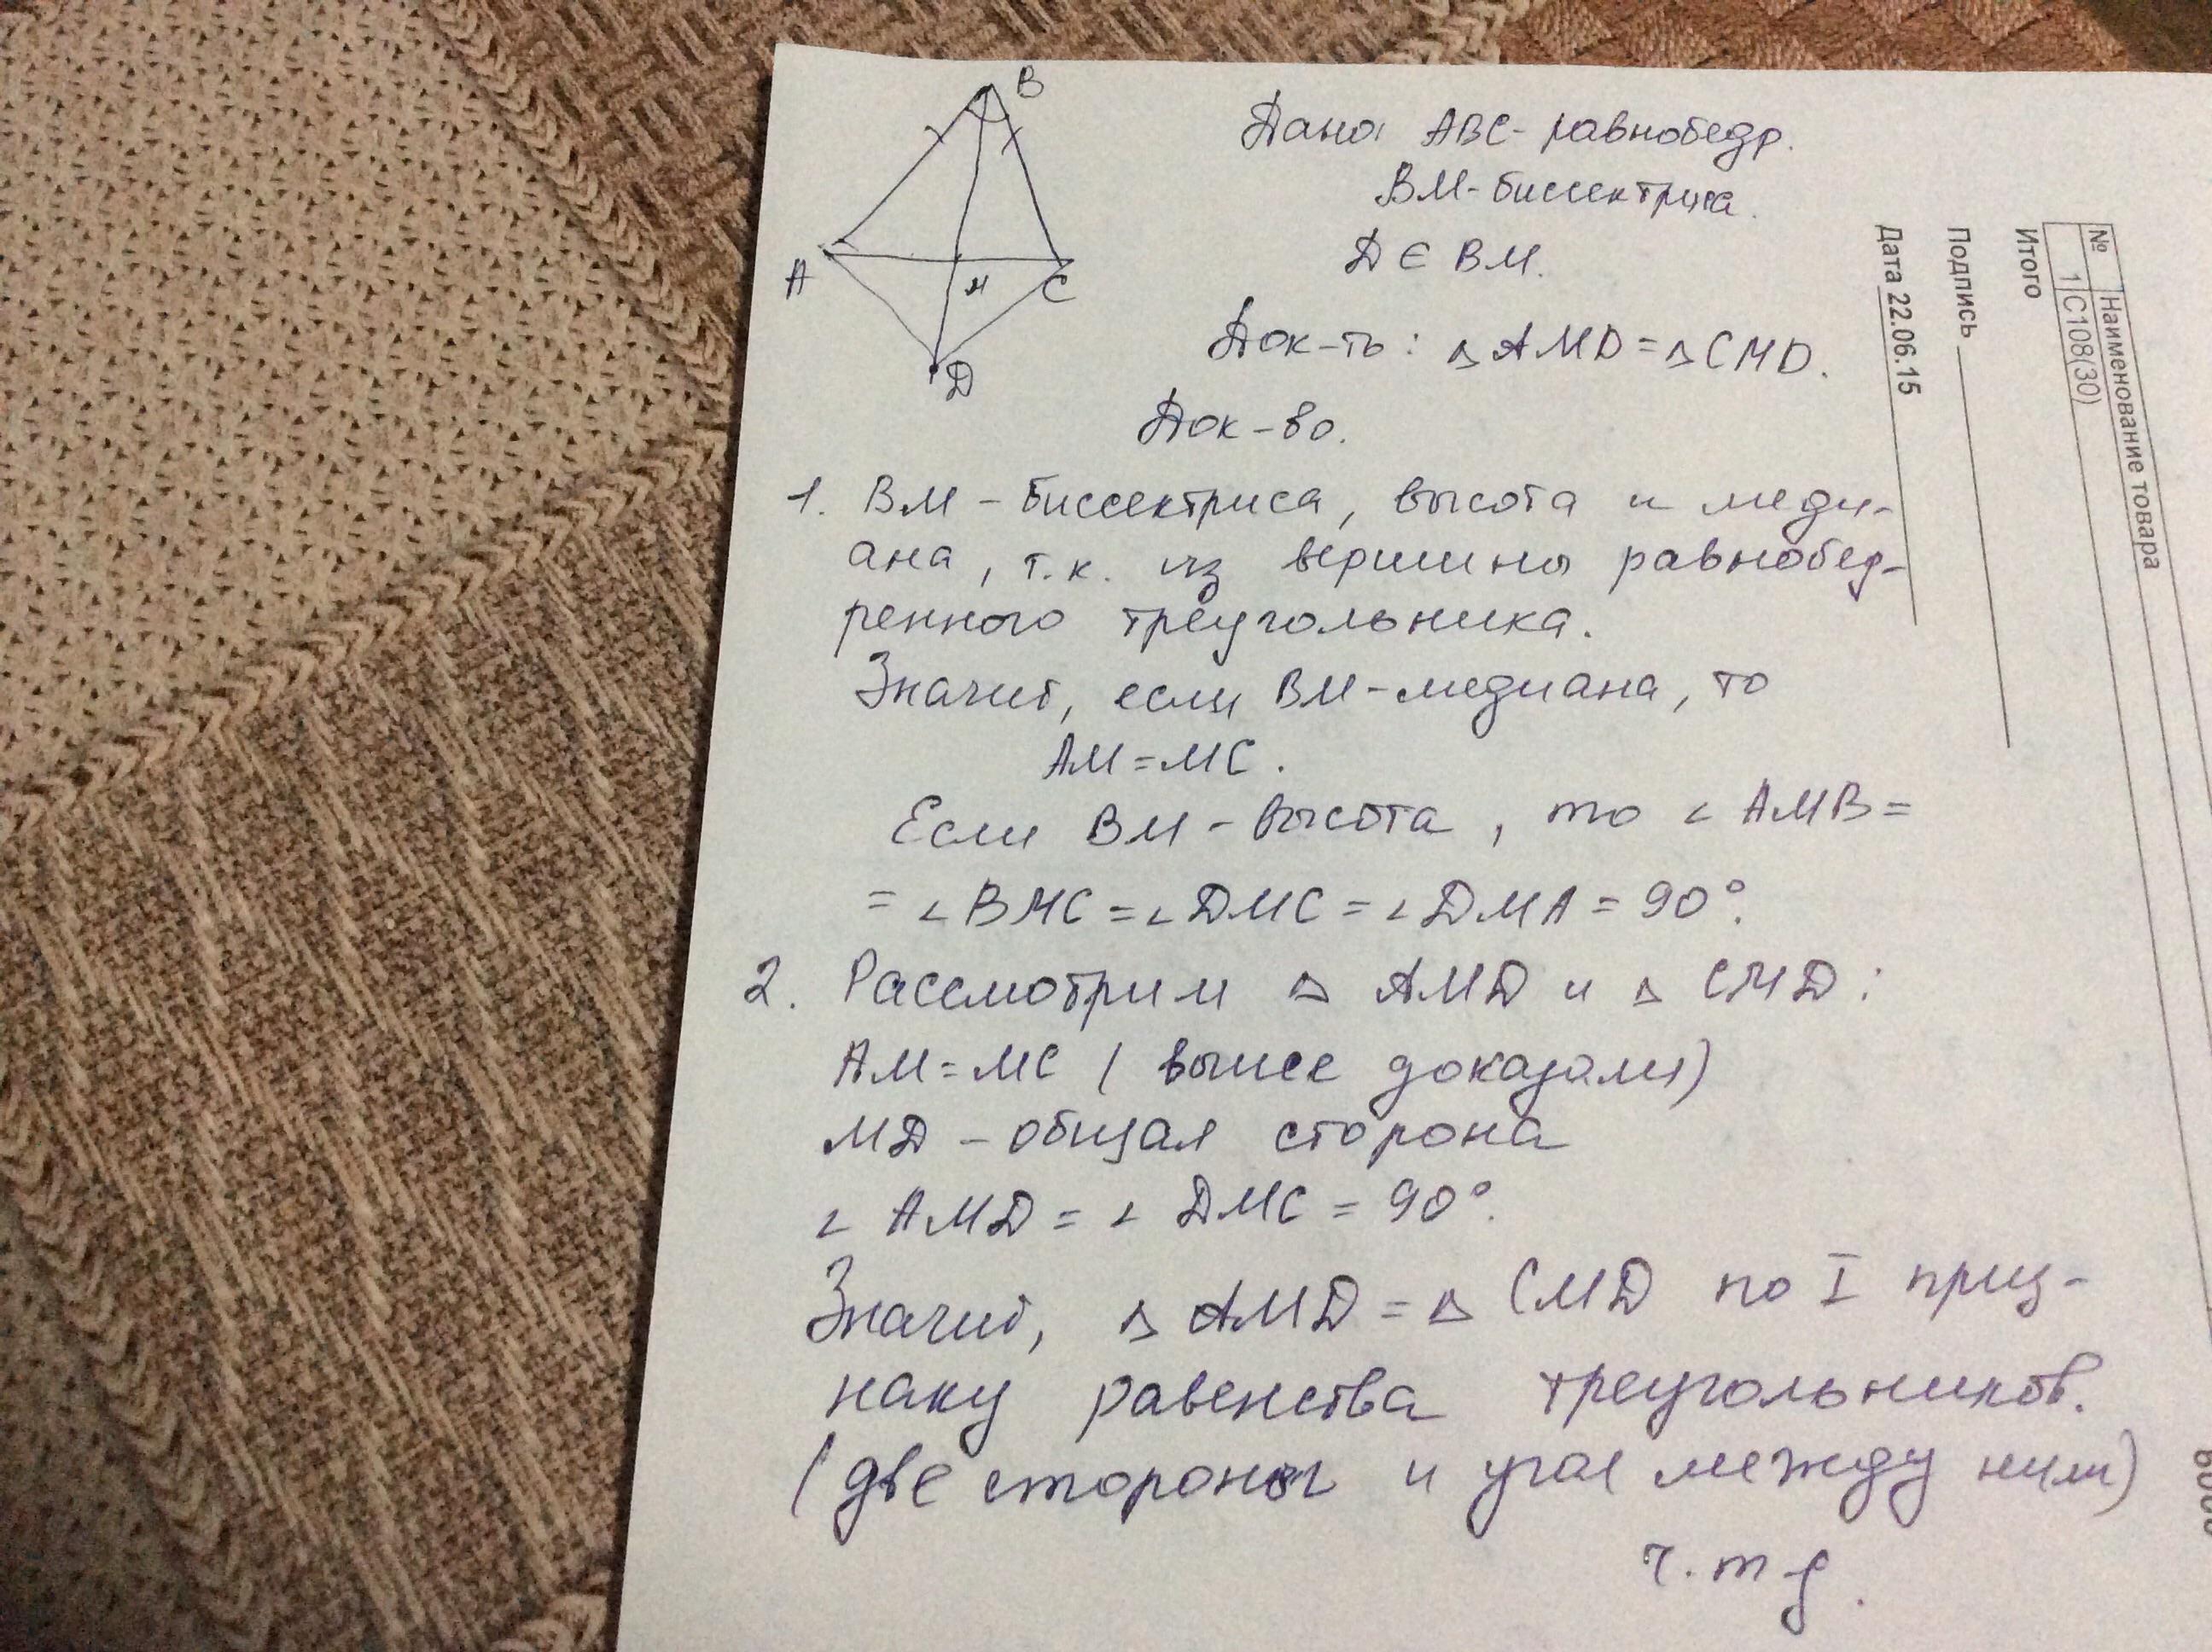 B
A
M
C
D
Дано: ABC - равнобедр.
BM - биссектриса.
D ∈ BM.
Док-ть: △AMD = △CMD.
Док-во.
1. BM - биссектриса, высота и меди-
ана, т.к. из вершины равнобед-
ренного треугольника.
Значит, если BM - медиана, то
AM = MC.
Если BM - высота, то ∠AMB =
= ∠BMC = ∠DMC = ∠DMA = 90°.
2. Рассмотрим △ AMD и △ CMD:
AM = MC (выше доказали)
MD - общая сторона
∠ AMD = ∠ DMC = 90°.
Значит, △ AMD = △ CMD по I приз-
наку равенства треугольников.
(две стороны и угол между ними)
ч.т.д.
№ Наименование товара
1 C108(30)
Итого
Подпись
Дата 22.06.15